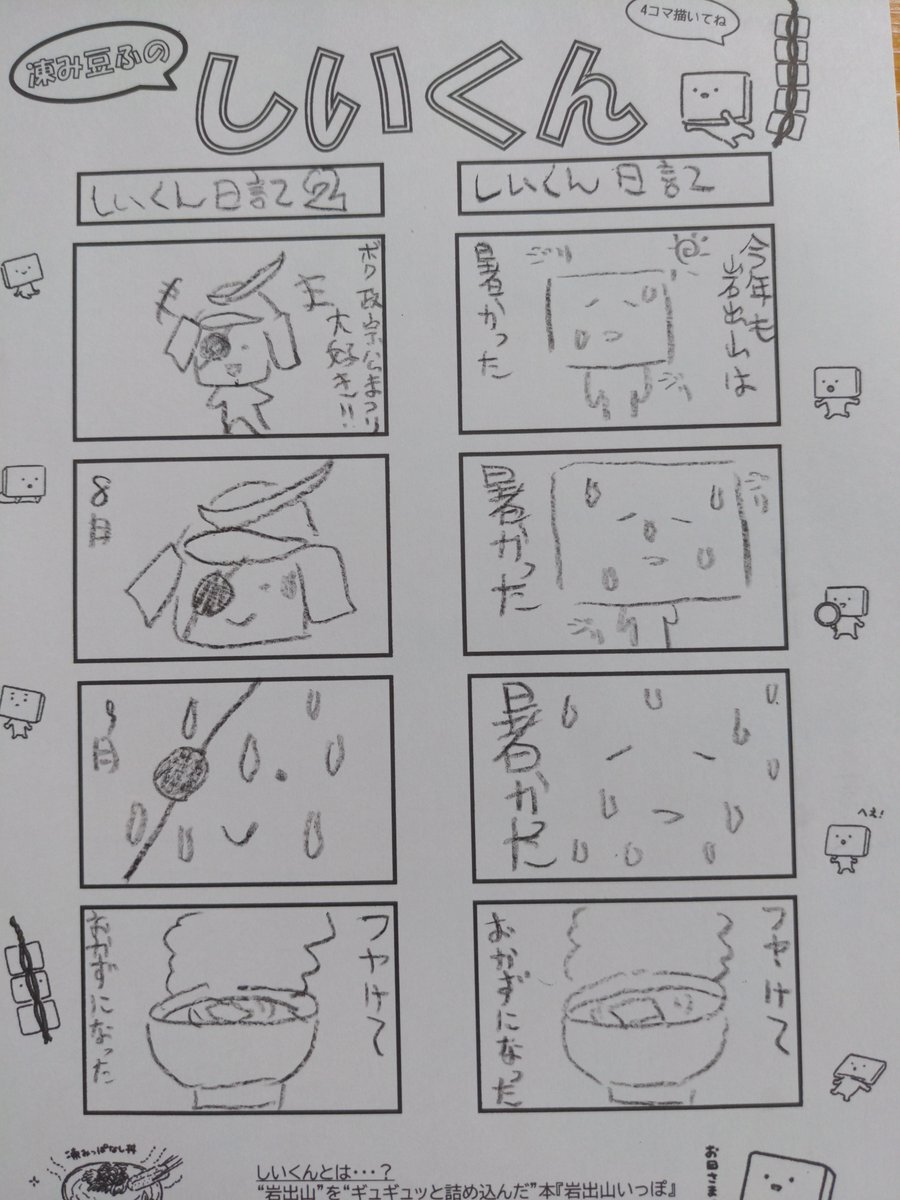 凍み豆ふの
しいくん
4コマ描いてね
しいくん日記
今年も
岩出山は
暑かった
ジリ
暑かった
ジリ
暑かった
フヤけ〜
おかずになった
しいくん日記2
ボク政宗公まつり
大好き!!
キャー
8月
9月
フヤけ〜
おかずになった
へぇ!
凍みっぱなし丼
しいくんとは・・・?
“岩出山”を“ギュギュッと詰め込んだ”本『岩出山いっぽ』
お日さま